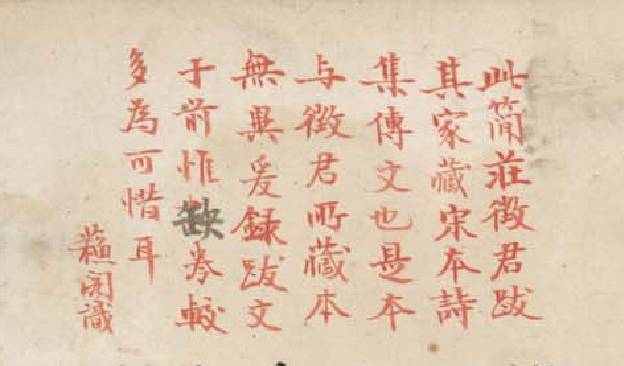 此簡莊徵君跋
其家藏宋本詩
集傳文也是本
与徵君所藏本
無異爰録跋文
于前惟缺卷較
多為可惜耳
蘓閣識